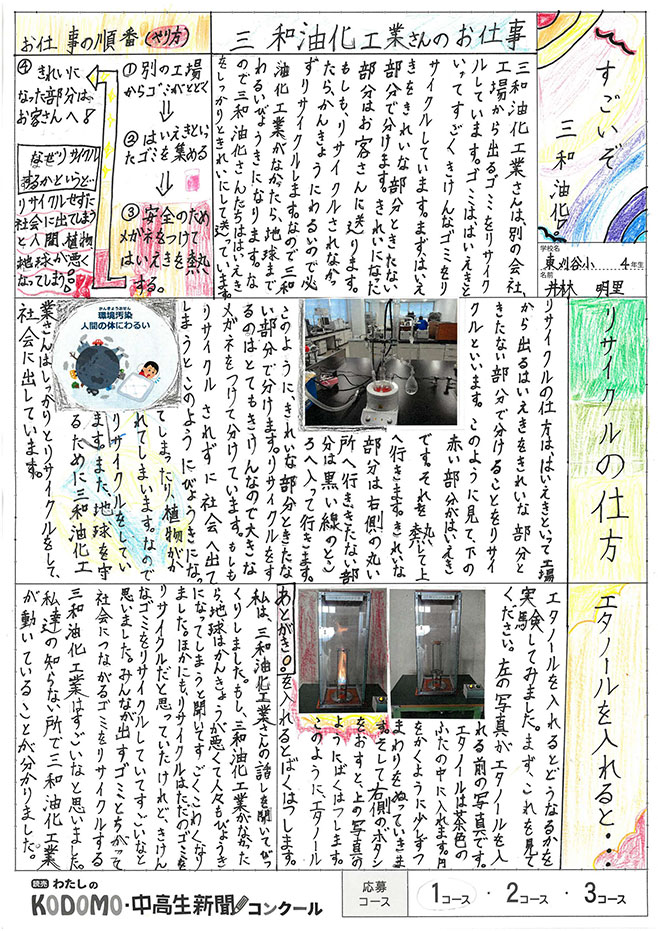 すごいぞ
三和油化。
学校名
東刈谷小 4年生
名前
井林 明里
三和油化工業さんのお仕事
三和油化工業さんは、別の会社、
工場から出るゴミをリサイク
ルしています。ゴミははいえきと
いってすごくきけんなゴミをリ
サイクルしています。まずはいえ
きをきれいな部分ときたない
部分で分けます。きれいになた
部分はお客さんに送ります。
もしも、リサイクルされなかっ
たら、かんきょうにわるいので必
ずリサイクルします。なので三和
油化工業がなかったら、地球まで
わるいびょうきになります。な
ので三和油化さんたちははいえき
をしっかりときれいにして送っています。
お仕事の順番(やり方)
①別の工場
からゴミがとどく
②はいえきといっ
たゴミを集める
③安全のため
メガネをつけて
はいえきを熱
する。
④きれいに
なった部分は、
お客さんへ
なぜリサイクル
するかというと…
リサイクルせずた
社会に出てしまう
と人間、植物
地球が悪く
なってしまう。
リサイクルの仕方
リサイクルの仕方は、はいえきといって工場
から出るはいえきをきれいな部分と
きたない部分で分けることをリサイ
クルといいます。このように見て、下の
赤い部分がはいえき
です。それを熱して上
へ行きます。きれいな
部分は右側の丸い
所へ行き、きたない部
分は黒い線のとこ
ろへ入って行きます。
このように、きれいな部分ときたな
い部分で分けます。リサイクルをす
るのはとてもきけんなので大きな
メガネをつけて分けています。もしも
リサイクルされずに社会へ出て
しまうとこのようにびょうきにな
ってしまったり、植物がか
れてしまいます。なので
リサイクルをしてい
ます。また、地球を守
るために三和油化工
業さんはしっかりとリサイクルをして、
社会に出しています。
環境汚染
人間の体にわるい
エタノールを入れると・・・
エタノールを入れるとどうなるかを
実験してみました。まず、これを見て
ください。左の写真がエタノールを入
れる前の写真です。
エタノールは茶色の
ふたの中に入れます。円
をかくように少しずつ
まわりをぬっていきま
す。そして右側のボタン
をおすと、上の写真の
ようにばくはつします。
このようにエタノール
を入れるとばくはつします。
あとがき。
私は、三和油化工業さんの話しを聞いてびっ
くりしました。もし、三和油化工業がなかった
ら、地球はかんきょうが悪くて人々もびょうき
になってしまうと聞いてすごくこわくなり
ました。ほかにも、リサイクルはただのゴミを
リサイクルだと思っていたけれど、きけん
なゴミをリサイクルしていてすごいなと
思いました。みんなが出すゴミとちがって
社会につながるゴミをリサイクルする
三和油化工業はすごいなと思いました。
私達の知らない所で三和油化工業
が動いていることが分かりました。
読売 わたしの
KODOMO・中高生新聞コンクール
応募
コース
1コース・2コース・3コース